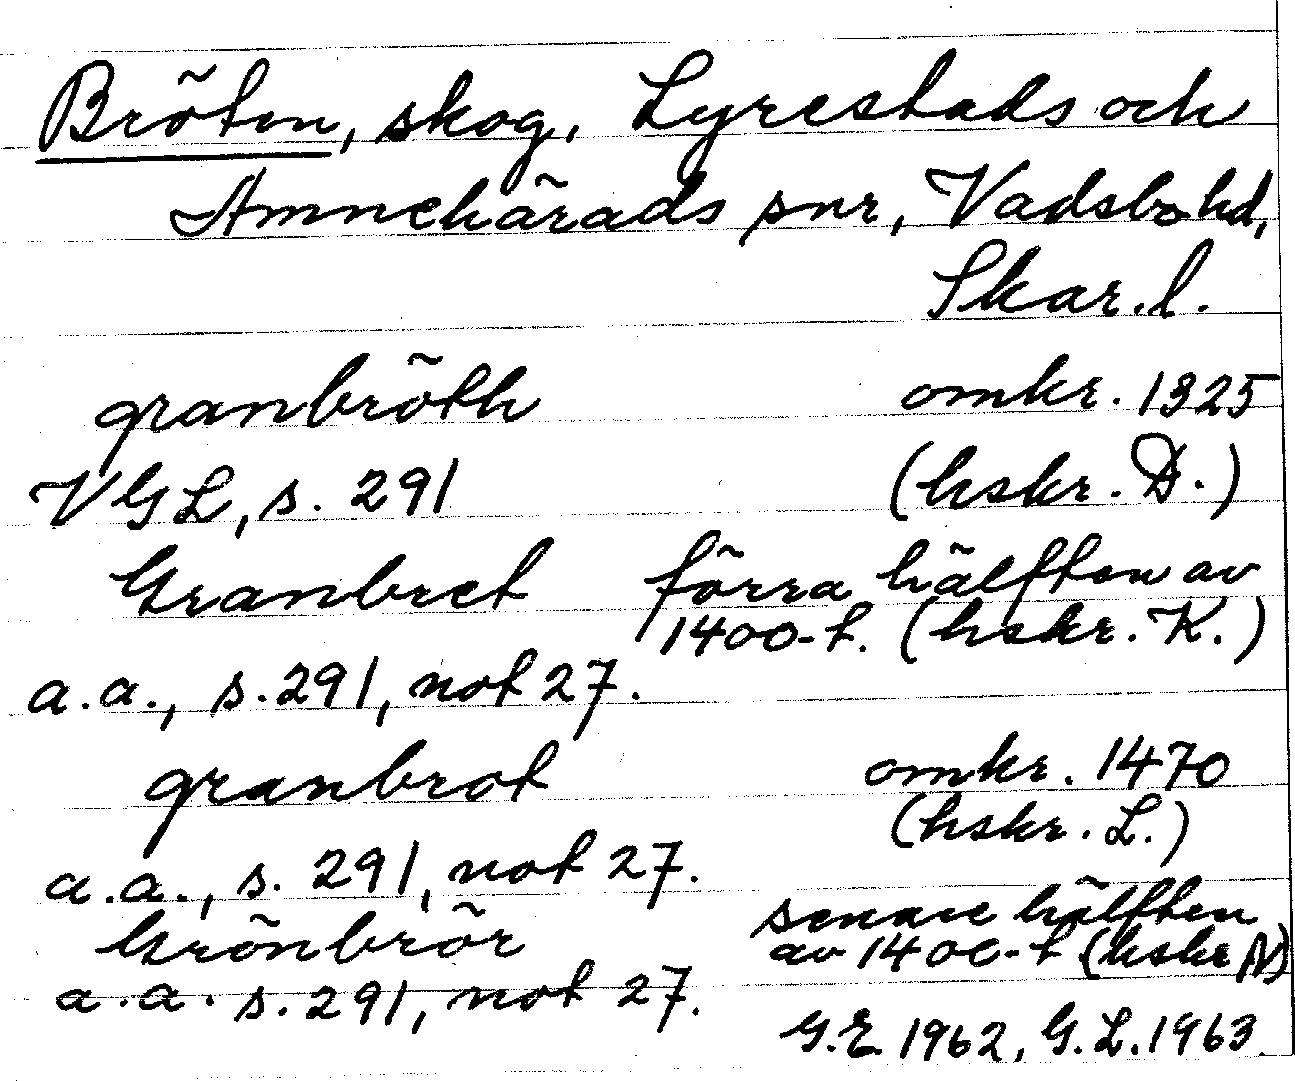 Bröten, skog, Lyrestads och
Amnehärads snr, Vadsbo hd,
Skar. l.
granbröth omkr. 1325
VGL, s. 291 (hskr. D.)
Granbret förra hälften av
1400-t. (hskr. K.)
a.a., s. 291, not 27.
granbrot omkr. 1470
(hskr. L.)
a.a., s. 291, not 27.
Grönbrör senare hälften
av 1400-t (hskr N)
a.a. s. 291, not 27.
G.E. 1962, G.L. 1963.